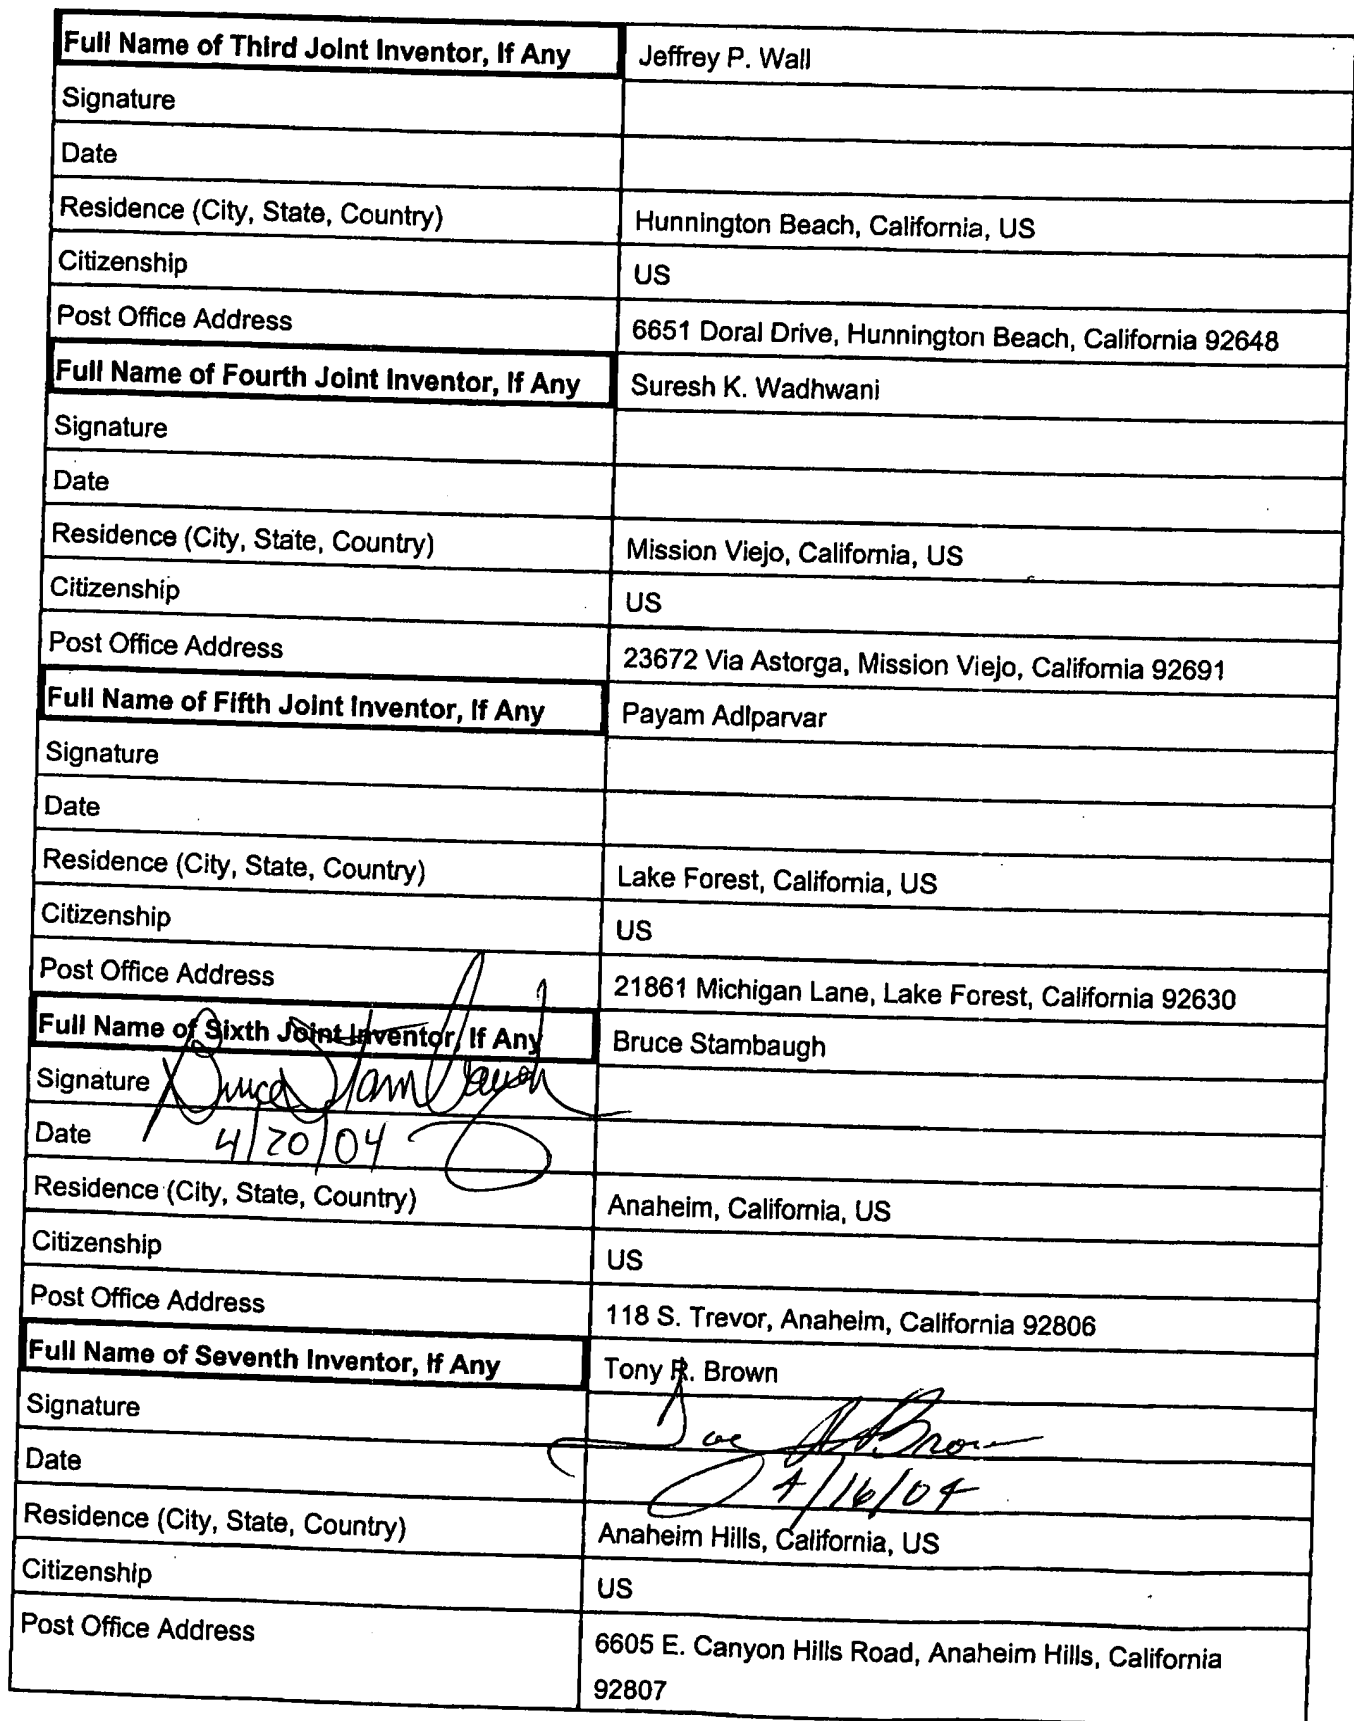 Full Name of Third Joint Inventor, If Any Jeffrey P. Wall
Signature
Date
Residence (City, State, Country) Hunnington Beach, California, US
Citizenship US
Post Office Address 6651 Doral Drive, Hunnington Beach, California 92648
Full Name of Fourth Joint Inventor, If Any Suresh K. Wadhwani
Signature
Date
Residence (City, State, Country) Mission Viejo, California, US
Citizenship US
Post Office Address 23672 Via Astorga, Mission Viejo, California 92691
Full Name of Fifth Joint Inventor, If Any Payam Adlparvar
Signature
Date
Residence (City, State, Country) Lake Forest, California, US
Citizenship US
Post Office Address 21861 Michigan Lane, Lake Forest, California 92630
Full Name of Sixth Joint Inventor, If Any Bruce Stambaugh
Signature Bruce Stambaugh
Date 4/20/04
Residence (City, State, Country) Anaheim, California, US
Citizenship US
Post Office Address 118 S. Trevor, Anaheim, California 92806
Full Name of Seventh Inventor, If Any Tony R. Brown
Signature Brown
Date 4/16/04
Residence (City, State, Country) Anaheim Hills, California, US
Citizenship US
Post Office Address 6605 E. Canyon Hills Road, Anaheim Hills, California
92807